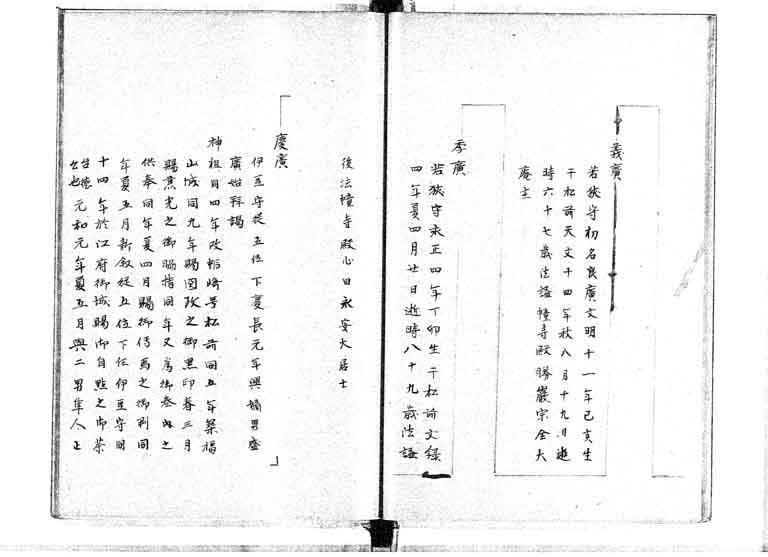 義廣
若狹守初名良廣文明十一年己亥生
于松前天文十四年秋八月十九日逝
時六十七歳法謚幢寺殿勝巖宗全大
庵主
季廣
若狹守永正四年丁卯生于松前文録
四年夏四月廿日逝時八十九歳法謚
後法幢寺殿心日永安大居士
慶廣
伊豆守從五位下慶長元年與嫡男盛
廣始拜謁
神祖同四年改蛎崎号松前同五年築福
山城同九年賜國政之御黑印暮三月
賜焦光之御腸指同年又爲御参内之
供奉同年夏四月賜御傳馬之御判同
年夏五月新叙從五位下任伊豆守同
十四年於江府御城賜御自點之御茶
也 元和元年夏五月與二男隼人正